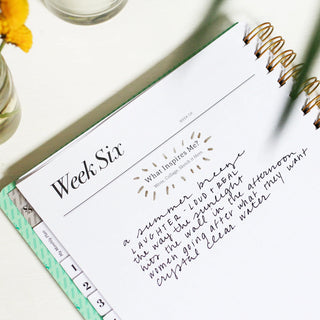 WEEK SIX
Week Six
What Inspires Me?
a summer breeze
LAUGHTER - LOUD + REAL
the way the sunlight
hits the wall in the afternoon
women going after what they want
crystal clear water
1
2
3